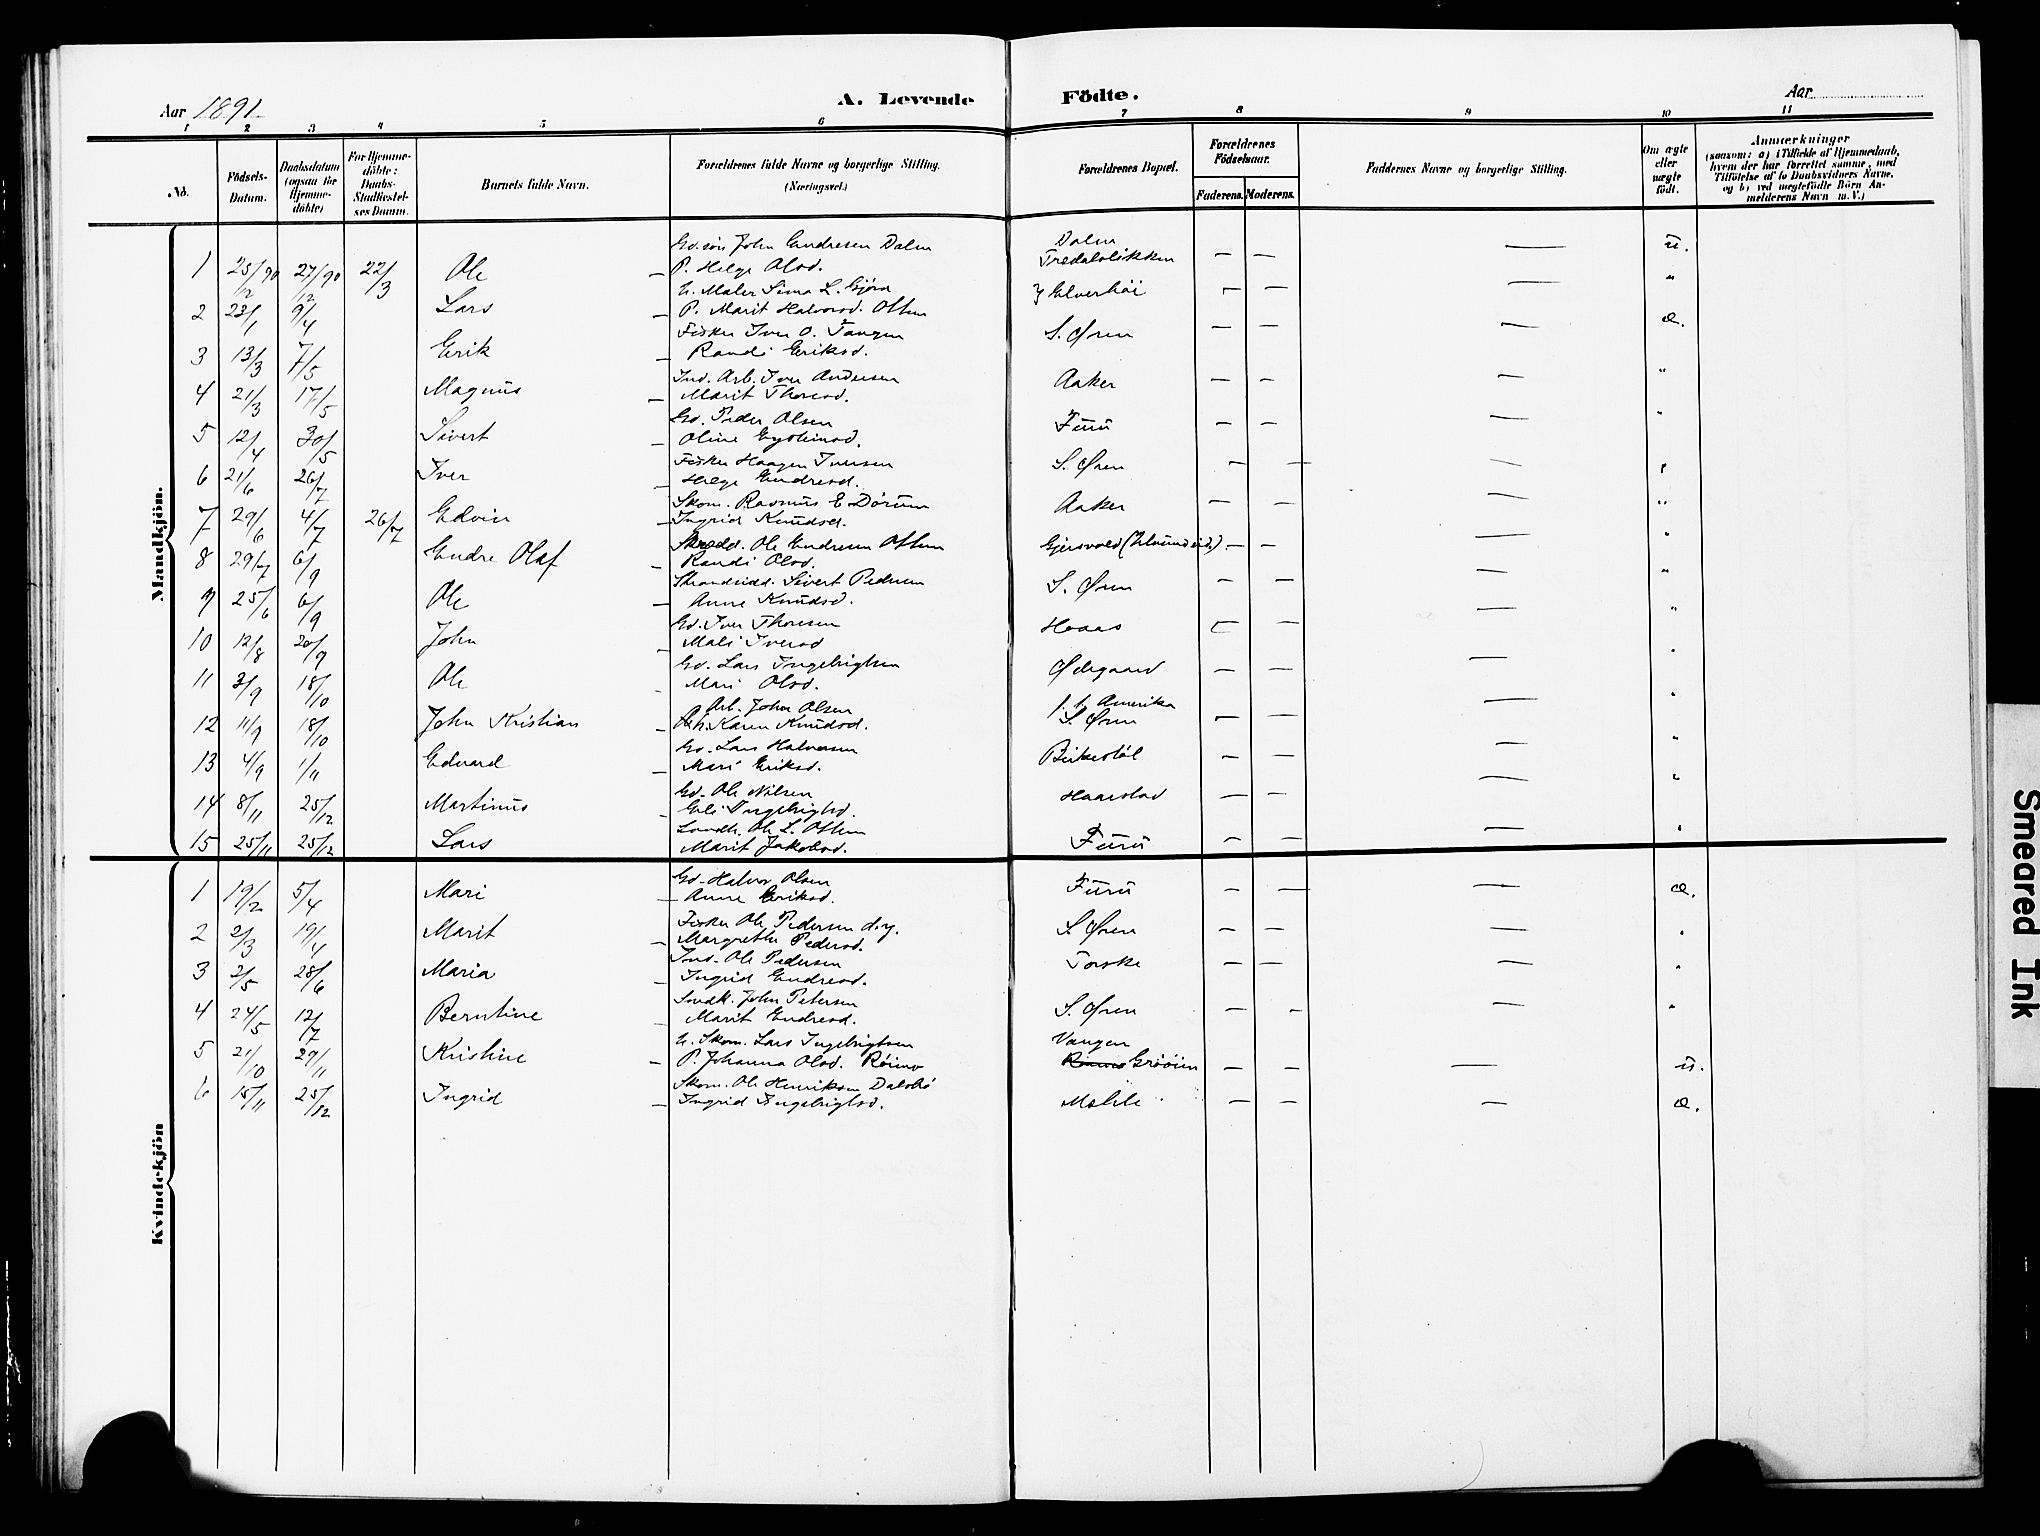 Aar 1891.
A. Levende Födte.
Aar
1 2 3 4 5 6 7 8 9 10 11
No. Födsels-Datum. Daabsdatum (ogsaa for Hjemmedöbte) For Hjemmedöbte: Daabs-Stadfæstelses Datum. Barnets fulde Navn. Forældrenes fulde Navne og borgerlige Stilling. (Næringsvei.) Forældrenes Bopæl. Forældrenes Födselsaar. Faderens. Moderens. Faddernes Navne og borgerlige Stilling. Om ægte eller uægte födt. Anmærkninger (saasom: a) i Tilfælde af Hjemmedaab, hvem der har forrettet samme, med Tilföielse af to Daabsvidners Navne, og b) ved uægtefödte Börn Anmelderens Navn m.V.)
Mandkjön.
Gd.søn John Endresen Dalen Dalen u.
1 25/12 90 27/12 90 22/3 Ole — P. Helge Olsd. Tredalslikken — —
U. Maler Simon L. Gjøra Elverhöi — — "
2 23/1 9/4 Lars — P. Marit Halvorsd. Ottem
Fisker Iver O. Tangen S. Øren — — æ.
3 13/3 7/5 Erik — Randi Eriksd.
Ind. Arb. Iver Andersen Aaker — — "
4 21/3 17/5 Magnus — Marit Thoresd.
Gd. Peder Olsen Furu — — "
5 12/4 30/5 Sivert — Oline Eysteinsd.
Fisker Haagen Iversen S. Øren — — "
6 21/6 26/7 Iver — Helge Endresd.
Skom. Rasmus E Dørum Aaker — — "
7 29/6 4/7 26/7 Edvin — Ingrid Knudsd.
Skredd. Ole Endresen Ottem Gjersvold — — "
8 29/7 6/9 Endre Olaf — Randi Olsd.
Strandsidd. Sivert Pedersen S. Øren — — "
9 25/6 6/9 Ole — Anne Knudsd.
Gd. Iver Thoresen Hoaas — — "
10 12/8 20/9 John — Mali Iversd
Gd. Lars Ingebrigtsen Ødegaard — — "
11 3/9 18/10 Ole — Mari Olsd.
Arb. John Olsen f. t. Amerika "
12 11/9 18/10 John Kristian — Karen Knudsd. S. Øren — —
Gd. Lars Halvorsen Birkestöl — — "
13 4/9 1/11 Edvard — Mari Eriksd.
Gd. Ole Nilsen Haarstad — — "
14 8/11 25/12 Martinus — Eli Ingebrigtsd.
Landh. Ole L. Ottem "
15 25/11 25/12 Lars — Marit Jakobsd. Furu — —
Kvindekjön
Gd. Halvor Olsen Furu — — æ.
1 19/2 5/4 Mari — Anne Eriksd.
Fisker Ole Pedersen d.y. S. Øren — — "
2 2/3 19/4 Marit — Margrethe Pedersd.
Ind. Ole Pedersen Torske — — "
3 2/5 28/6 Maria — Ingrid Endresd.
Snedk. John Petersen S. Øren — — "
4 24/5 12/7 Berntine — Marit Endresd.
U. Skom. Lars Ingebrigtsen Vangen
5 21/10 29/11 Kristine — P. Johanna Olsd. Røimo Grööien — — u.
Skom. Ole Henriksen Dalsbö
6 15/11 25/12 Ingrid — Ingrid Ingebrigtsd. Melile — — æ.
Smeared Ink